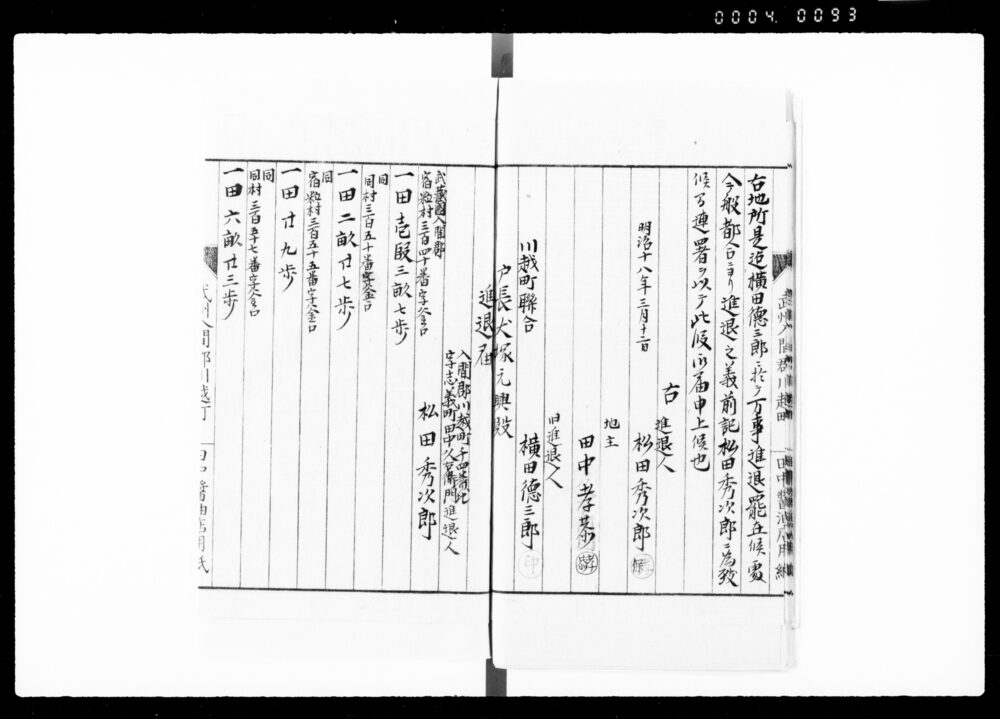 0004 0093
右地所是迄横田徳三郎ニ於テ万事進退罷在候處
今般都合ニヨリ進退之義前記松田秀次郎ニ為致
候ニ付連署ヲ以テ此段御届申上候也
明治十八年三月十二日
右進退人
松田秀次郎
地主
田中孝恭
旧進退人
横田徳三郎 印
川越町聯合
戸長犬塚元興殿
進退届
入間郡川越町千四番地
字志義町田中久右衛門進退人
松田秀次郎
武蔵國入間郡
宿粒村三百四十番字釜口
一田壱段三畝七歩
同
同村三百五十番字釜口
一田二畝廿七歩
同
宿粒村三百五十五番字釜口
一田廿九歩
同
同村三百五十七番字釜口
一田六畝廿三歩
武州入間郡川越町
田中醤油店用紙